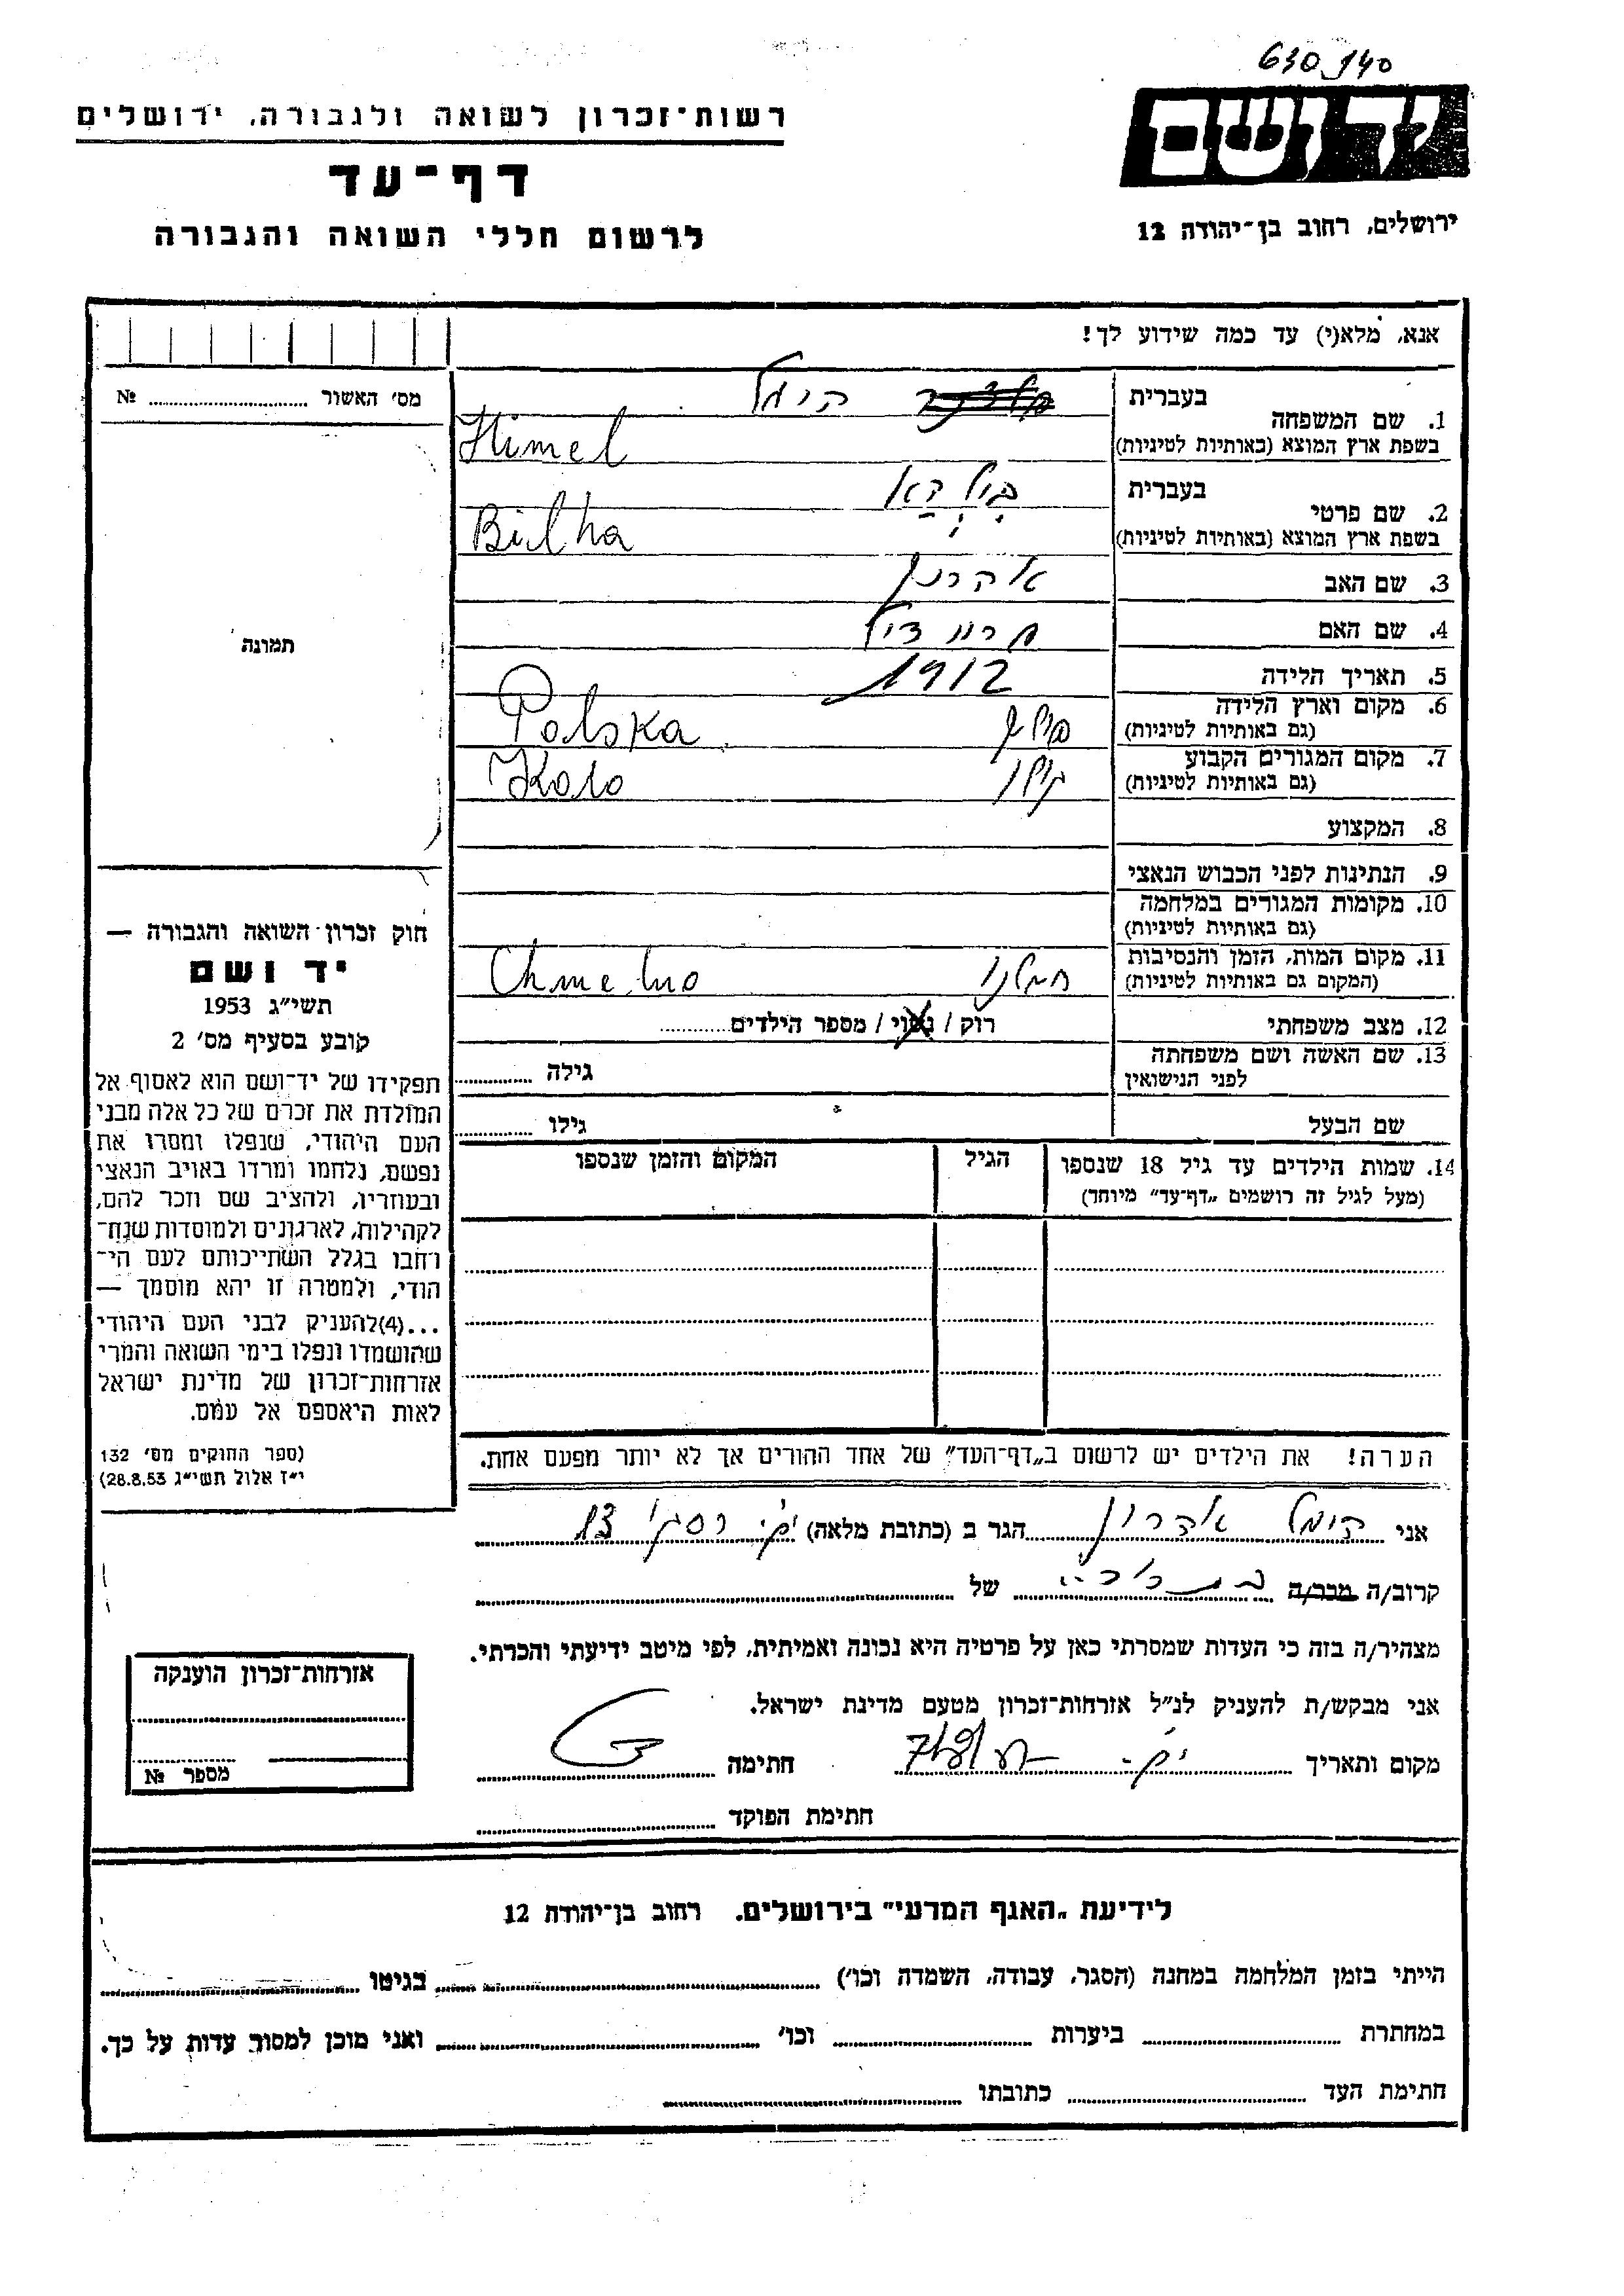 630 140
רשות־זכרון לשואה ולגבורה, ירושלים
יד ושם
דף־עד
לרשום חללי השואה והגבורה
ירושלים, רחוב בן־יהודה 12
אנא, מלא(י) עד כמה שידוע לך!
מס׳ האשור № 
1. שם המשפחה בעברית הימל
בשפת ארץ המוצא (באותיות לטיניות) Himel
2. שם פרטי בעברית
בשפת ארץ המוצא (באותיות לטיניות) Bilha
3. שם האב אהרון
4. שם האם
5. תאריך הלידה 1912
6. מקום וארץ הלידה (גם באותיות לטיניות) פולין Polska
7. מקום המגורים הקבוע (גם באותיות לטיניות) קולו Kolo
8. המקצוע
9. הנתינות לפני הכבוש הנאצי
10. מקומות המגורים במלחמה (גם באותיות לטיניות)
11. מקום המות, הזמן והנסיבות (המקום גם באותיות לטיניות) חמלנו Chmelno
12. מצב משפחתי רוק / נשוי / מספר הילדים
13. שם האשה ושם משפחתה לפני הנישואין גילה
שם הבעל גילו
14. שמות הילדים עד גיל 18 שנספו (מעל לגיל זה רושמים „דף־עד״ מיוחד)
הגיל
המקום והזמן שנספו
תמונה
חוק זכרון השואה והגבורה —
יד ושם
תשי״ג 1953
קובע בסעיף מס׳ 2
תפקידו של יד־ושם הוא לאסוף אל
המולדת את זכרם של כל אלה מבני
העם היהודי, שנפלו ומסרו את
נפשם, נלחמו ומרדו באויב הנאצי
ובעוזריו, ולהציב שם וזכר להם,
לקהילות, לארגונים ולמוסדות שנח־
רחבו בגלל השתייכותם לעם הי־
הודי, ולמטרה זו יהא מוסמך —
...(4) להעניק לבני העם היהודי
שהושמדו ונפלו בימי השואה והמרי
אזרחות־זכרון של מדינת ישראל
לאות היאספם אל עמם.
(ספר החוקים מס׳ 132
י״ז אלול תשי״ג 28.8.53)
הערה! את הילדים יש לרשום ב„דף־העד״ של אחד ההורים אך לא יותר מפעם אחת.
אני הימל אהרון הגר ב (כתובת מלאה) 13
קרוב/ה מכר/ה של
מצהיר/ה בזה כי העדות שמסרתי כאן על פרטיה היא נכונה ואמיתית, לפי מיטב ידיעתי והכרתי.
אני מבקש/ת להעניק לנ״ל אזרחות־זכרון מטעם מדינת ישראל.
מקום ותאריך חתימה
חתימת הפוקד
אזרחות־זכרון הוענקה
מספר №
לידיעת „האגף המדעי״ בירושלים, רחוב בן־יהודה 12
הייתי בזמן המלחמה במחנה (הסגר, עבודה, השמדה וכו׳) בגיטו
במחתרת ביערות וכו׳ ואני מוכן למסור עדות על כך.
חתימת העד כתובתו